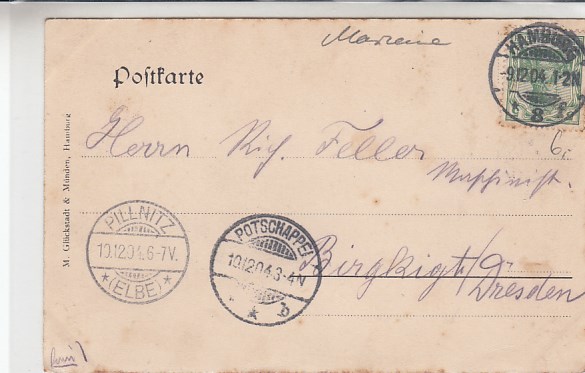 Mariane
HAMBURG
-9.12.04.1-2N
* 8 f.
Postkarte
Herrn Rich. Feller
Maschinist.
6,-
M. Glückstadt & Münden, Hamburg
PILLNITZ
10.12.04.6-7V.
*(ELBE)*
POTSCHAPPEL
10.12.04.3-4N
* b
Birgkigt b/
Dresden